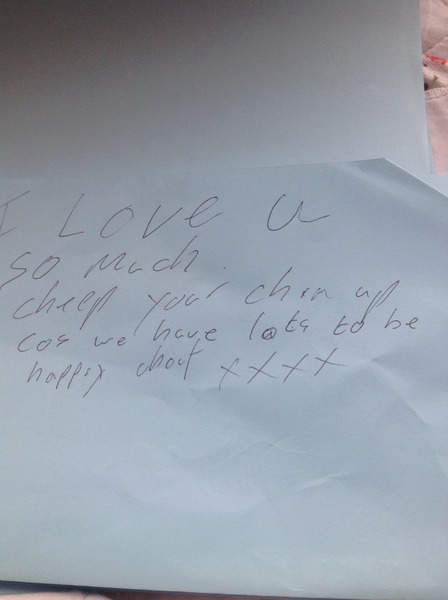 I Love u
so much.
cheep your chin up
cos we have lots to be
happy about xxxx